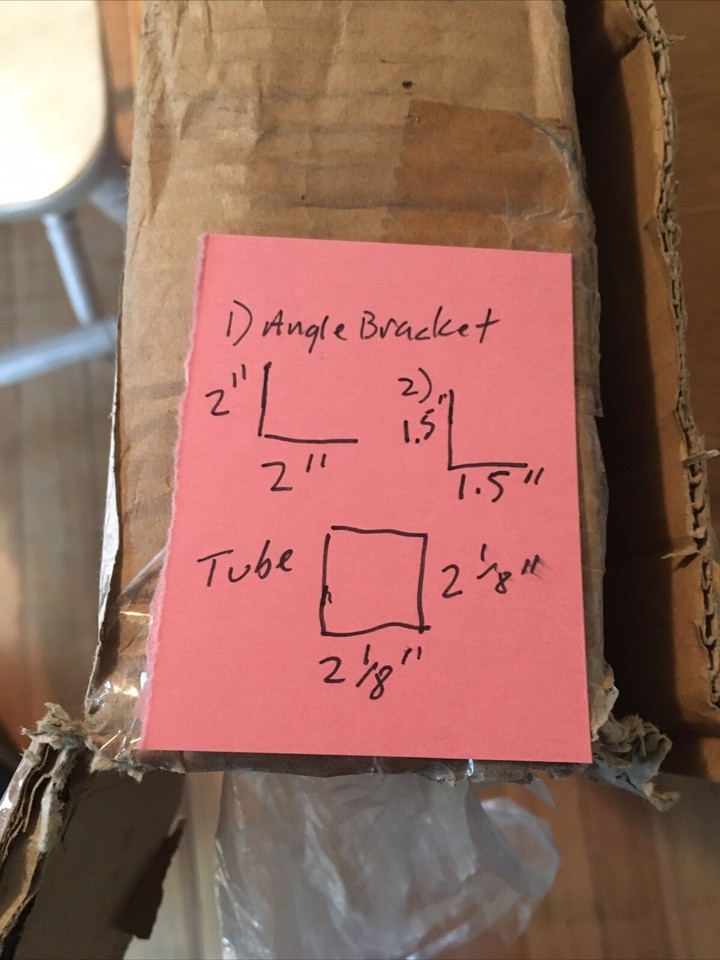 1) Angle Bracket
2"
2"
2)
1.5"
1.5"
Tube
2 1/8"
2 1/8"